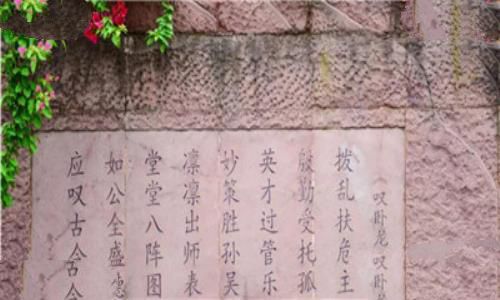 叹卧龙叹卧
拨乱扶危主
殷勤受托孤
英才过管乐
妙策胜孙吴
凛凛出师表
堂堂八阵图
如公全盛
应叹古